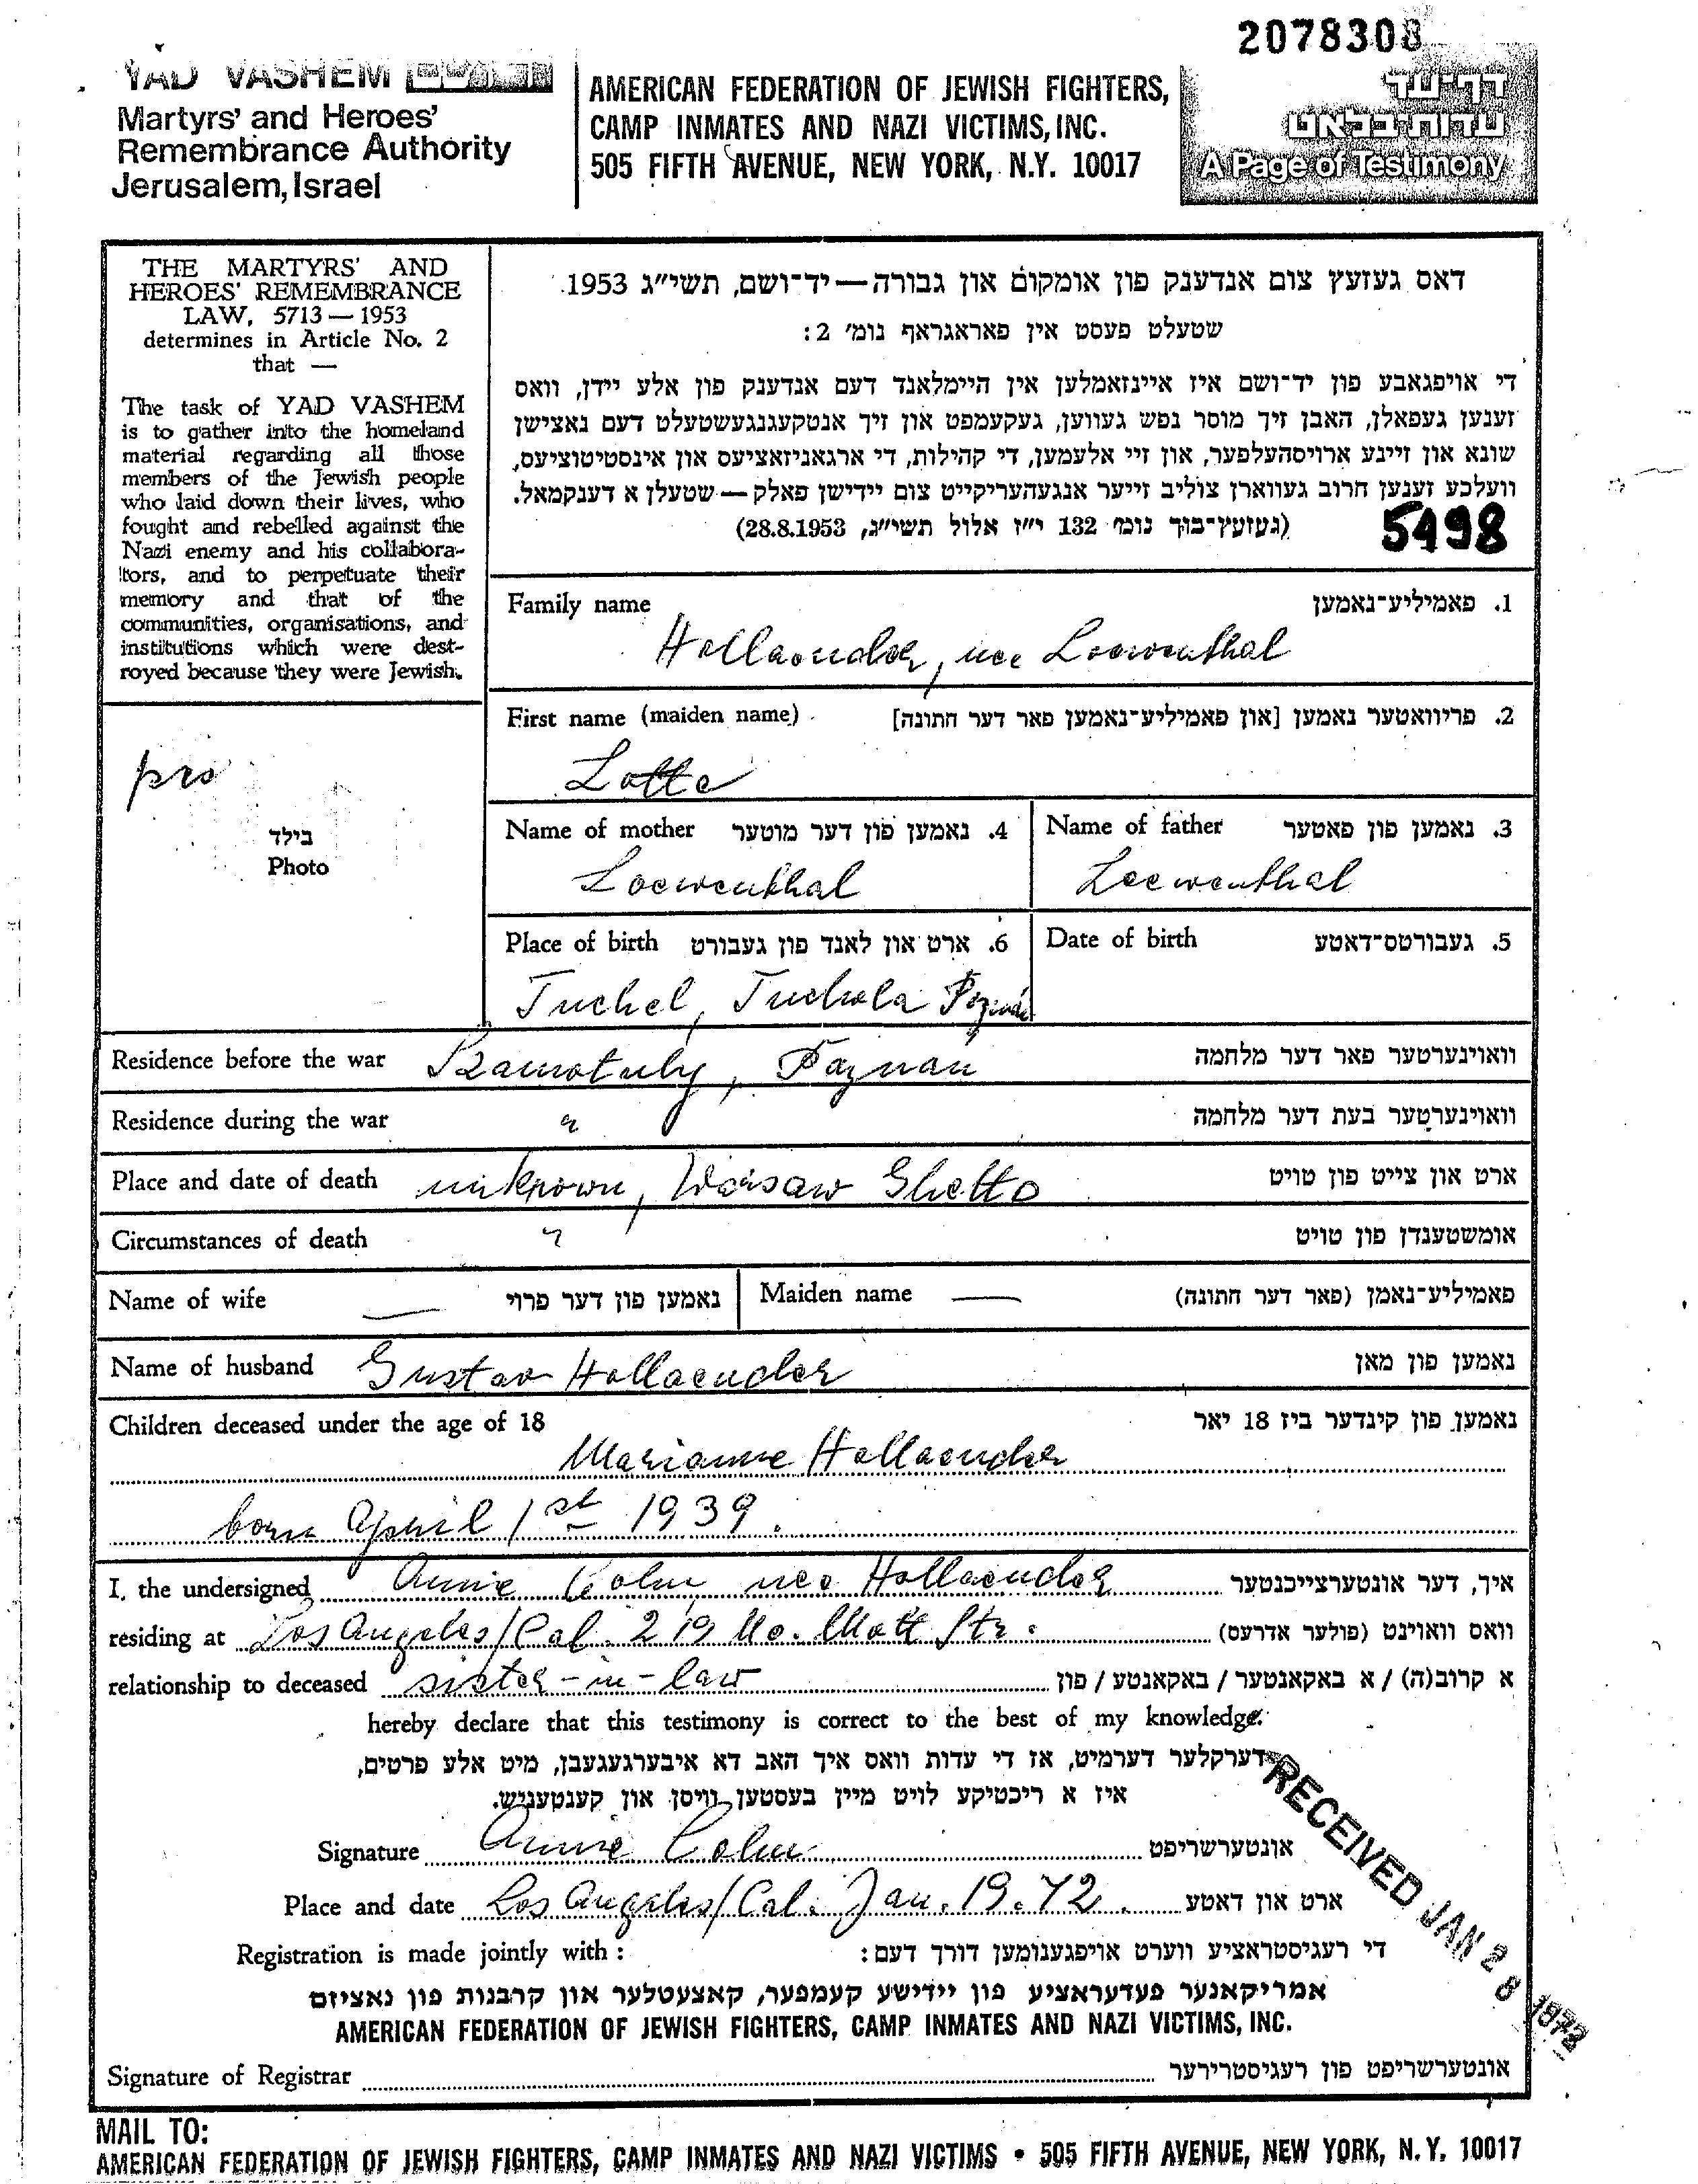 2078308
YAD VASHEM
Martyrs' and Heroes'
Remembrance Authority
Jerusalem, Israel
AMERICAN FEDERATION OF JEWISH FIGHTERS,
CAMP INMATES AND NAZI VICTIMS, INC.
505 FIFTH AVENUE, NEW YORK, N.Y. 10017
דף-עד
עדות-בלאט
A Page of Testimony
THE MARTYRS' AND
HEROES' REMEMBRANCE
LAW, 5713 — 1953
determines in Article No. 2
that —
The task of YAD VASHEM
is to gather into the homeland
material regarding all those
members of the Jewish people
who laid down their lives, who
fought and rebelled against the
Nazi enemy and his collabora-
tors, and to perpetuate their
memory and that of the
communities, organisations, and
institutions which were dest-
royed because they were Jewish.
דאס געזעץ צום אנדענק פון אומקום און גבורה — יד־ושם, תשי"ג 1953.
שטעלט פעסט אין פאראגראף נומ' 2:
די אויפגאבע פון יד־ושם איז איינזאמלען אין היימלאנד דעם אנדענק פון אלע יידן, וואס
זענען געפאלן, האבן זיך מוסר נפש געווען, געקעמפט און זיך אנטקעגנגעשטעלט דעם נאצישן
שונא און זיינע ארויסהעלפער, און זיי אלעמען, די קהילות, די ארגאניזאציעס און אינסטיטוציעס,
וועלכע זענען חרוב געווארן צוליב זייער אנגעהעריקייט צום יידישן פאלק — שטעלן א דענקמאל.
(געזעץ־בוך נומ' 132 י"ז אלול תשי"ג, 28.8.1953)
5498
Family name 1. פאמיליע־נאמען
Hollaender, nee Loewenthal
First name (maiden name) 2. פריוואטער נאמען [און פאמיליע־נאמען פאר דער חתונה]
Lotte
pro
בילד
Photo
Name of mother 4. נאמען פון דער מוטער
Loewenthal
Name of father 3. נאמען פון פאטער
Loewenthal
Place of birth 6. ארט און לאנד פון געבורט
Tuchel, Tuchola Poznań
Date of birth 5. געבורטס־דאטע
Residence before the war Szamotuly, Poznan וואוינערטער פאר דער מלחמה
Residence during the war וואוינערטער בעת דער מלחמה
Place and date of death unknown, Warsaw Ghetto ארט און צייט פון טויט
Circumstances of death ? אומשטענדן פון טויט
Name of wife — נאמען פון דער פרוי
Maiden name — פאמיליע־נאמן (פאר דער חתונה)
Name of husband Gustav Hollaender נאמען פון מאן
Children deceased under the age of 18 נאמען פון קינדער ביז 18 יאר
Marianne Hollaender
born April 1st 1939.
I, the undersigned Annie Cohn, nee Hollaender איך, דער אונטערצייכנטער
residing at Los Angeles/Cal. 219 No. Mott Str. וואס וואוינט (פולער אדרעס)
relationship to deceased sister-in-law א קרוב(ה) / א באקאנטער / באקאנטע / פון
hereby declare that this testimony is correct to the best of my knowledge.
דערקלער דערמיט, אז די עדות וואס איך האב דא איבערגעגעבן, מיט אלע פרטים,
איז א ריכטיקע לויט מיין בעסטען וויסן און קענטעניש.
Signature Annie Cohn אונטערשריפט
Place and date Los Angeles/Cal. Jan. 19. 72. ארט און דאטע
RECEIVED JAN 28 1972
Registration is made jointly with : די רעגיסטראציע ווערט אויפגענומען דורך דעם:
אמריקאנער פעדעראציע פון יידישע קעמפער, קאצעטלער און קרבנות פון נאציזם
AMERICAN FEDERATION OF JEWISH FIGHTERS, CAMP INMATES AND NAZI VICTIMS, INC.
Signature of Registrar אונטערשריפט פון רעגיסטרירער
MAIL TO:
AMERICAN FEDERATION OF JEWISH FIGHTERS, CAMP INMATES AND NAZI VICTIMS • 505 FIFTH AVENUE, NEW YORK, N.Y. 10017